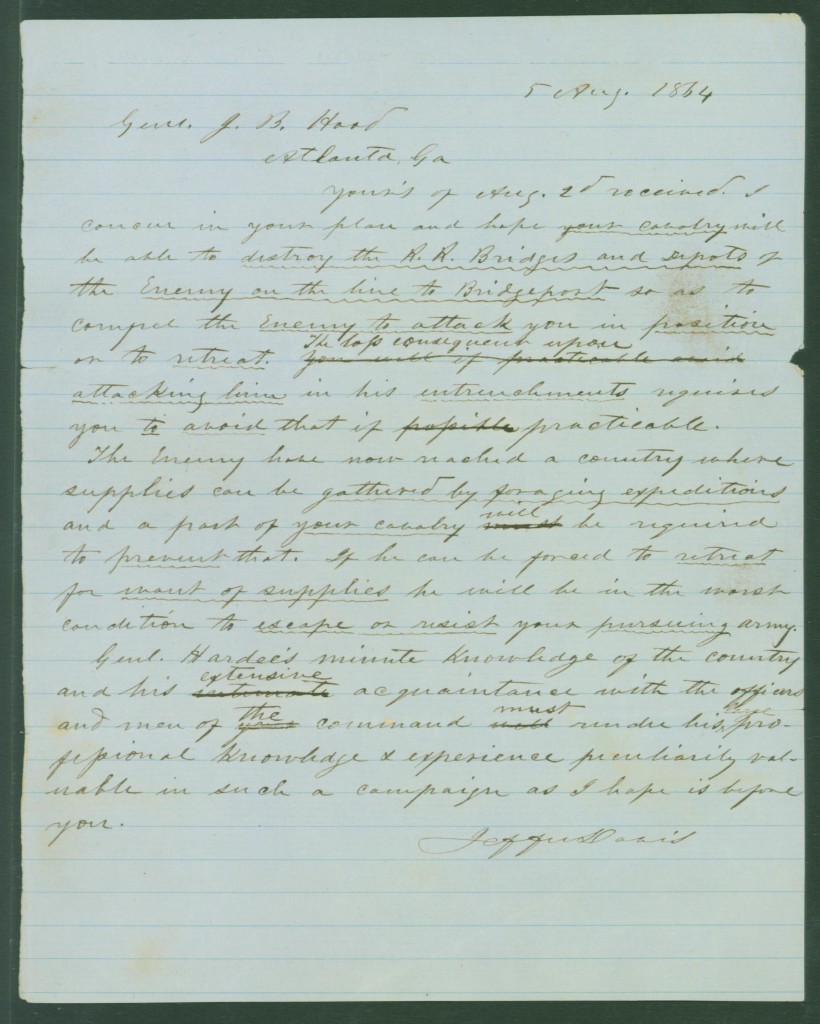 5 Aug. 1864
Genl. J. B. Hood
Atlanta, Ga
Your's of Aug. 2d received. I
concur in your plan and hope your cavalry will
be able to destroy the R. R. Bridges and depots of
the Enemy on the line to Bridgeport so as to
compel the Enemy to attack you in position
The loss consequent upon
or to retreat. You will if practicable avoid
attacking him in his intrenchments requires
you to avoid that if possible practicable.
The Enemy have now reached a country where
supplies can be gathered by foraging expeditions
will
and a part of your cavalry must be required
to prevent that. If he can be forced to retreat
for want of supplies he will be in the worst
condition to escape or resist your pursuing army.
Genl. Hardee's minute knowledge of the country
extensive
and his intimate acquaintance with the officers
the must
and men of your command will render his pro-
fessional knowledge & experience peculiarly val-
uable in such a campaign as I hope is before
you.
Jeffn Davis